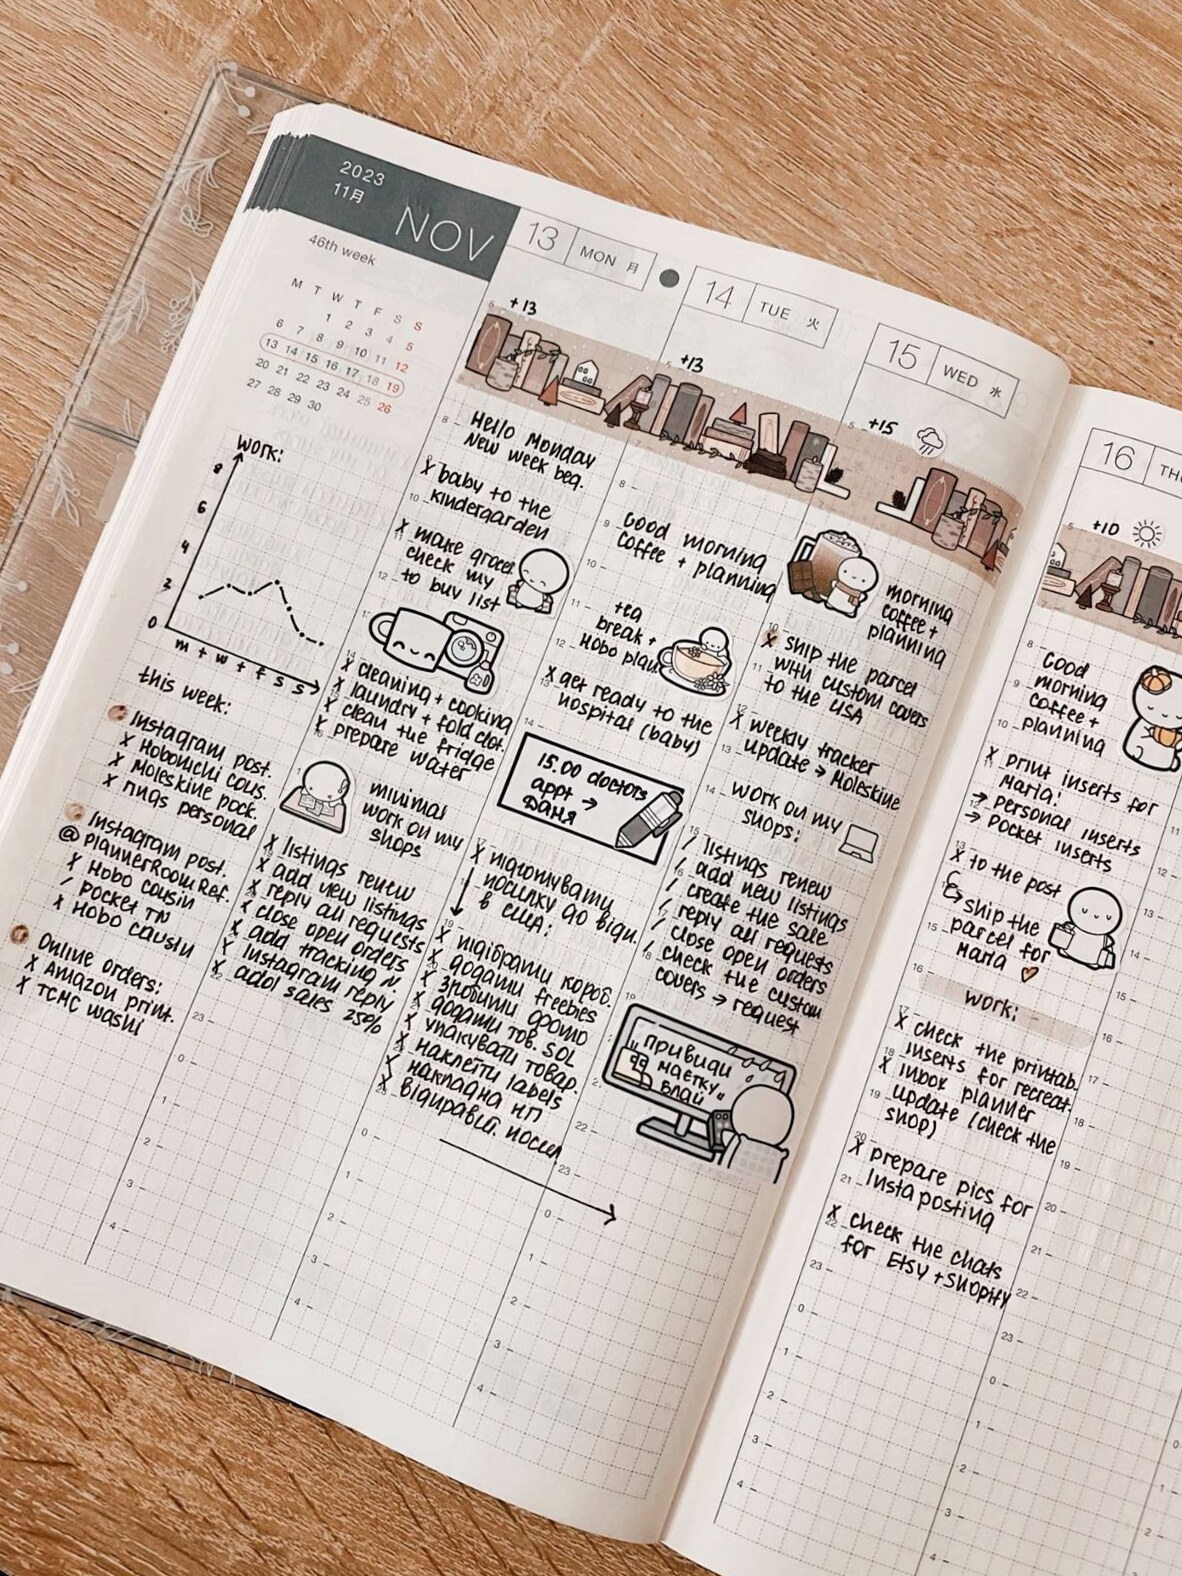 2023
11月
NOV
46th week
M T W T F S S
1 2 3 4 5
6 7 8 9 10 11 12
13 14 15 16 17 18 19
20 21 22 23 24 25 26
27 28 29 30
work:
8
6
4
2
0
m t w t f s s
this week:
Instagram post.
x Hobonichi cous.
x Moleskine pock.
x rings personal
Instagram post.
@plannerRoomRef.
x Hobo cousin
/ pocket TN
x Hobo cousin
Online orders:
x Amazon print.
x TCMC washi
13 MON 月
+13
Hello Monday
New week beg.
x baby to the
kindergarden
x make grocer
check my
to buy list
x cleaning + cooking
x laundry + fold clot.
x clean the fridge
x prepare water
minimal
work on my
shops
x listings renew
x add new listings
x reply all requests
x close open orders
x add tracking n.
x Instagram reply
x add sales 25%
14 TUE 火
+13
Good morning
coffee + planning
tea
break +
Hobo plan.
x get ready to the
hospital (baby)
15.00 doctors
appt →
Даня
x підготувати
посилку до відп.
в США:
x підібрати короб.
x додати freebies
x зробити фото
x додати тов. SOL
x упакувати товар
x наклеїти labels
x накладна НП
x відправит. посил
15 WED 水
+15
morning
coffee +
planning
x ship the parcel
with custom covers
to the USA
x weekly tracker
update → Moleskine
work on my
shops:
/ listings renew
/ add new listings
/ create the sale
/ reply all requests
/ close open orders
/ check the custom
covers → request
"Привиди
маєтку
Блай"
16 THU
+10
Good
morning
coffee +
planning
x print inserts for
Maria:
→ Personal inserts
→ Pocket inserts
x to the post
↳ ship the
parcel for
Maria ♡
work:
x check the printab.
inserts for recreat.
x inbox planner
update (check the
shop)
x prepare pics for
Insta posting
x check the chats
for Etsy + Shopify